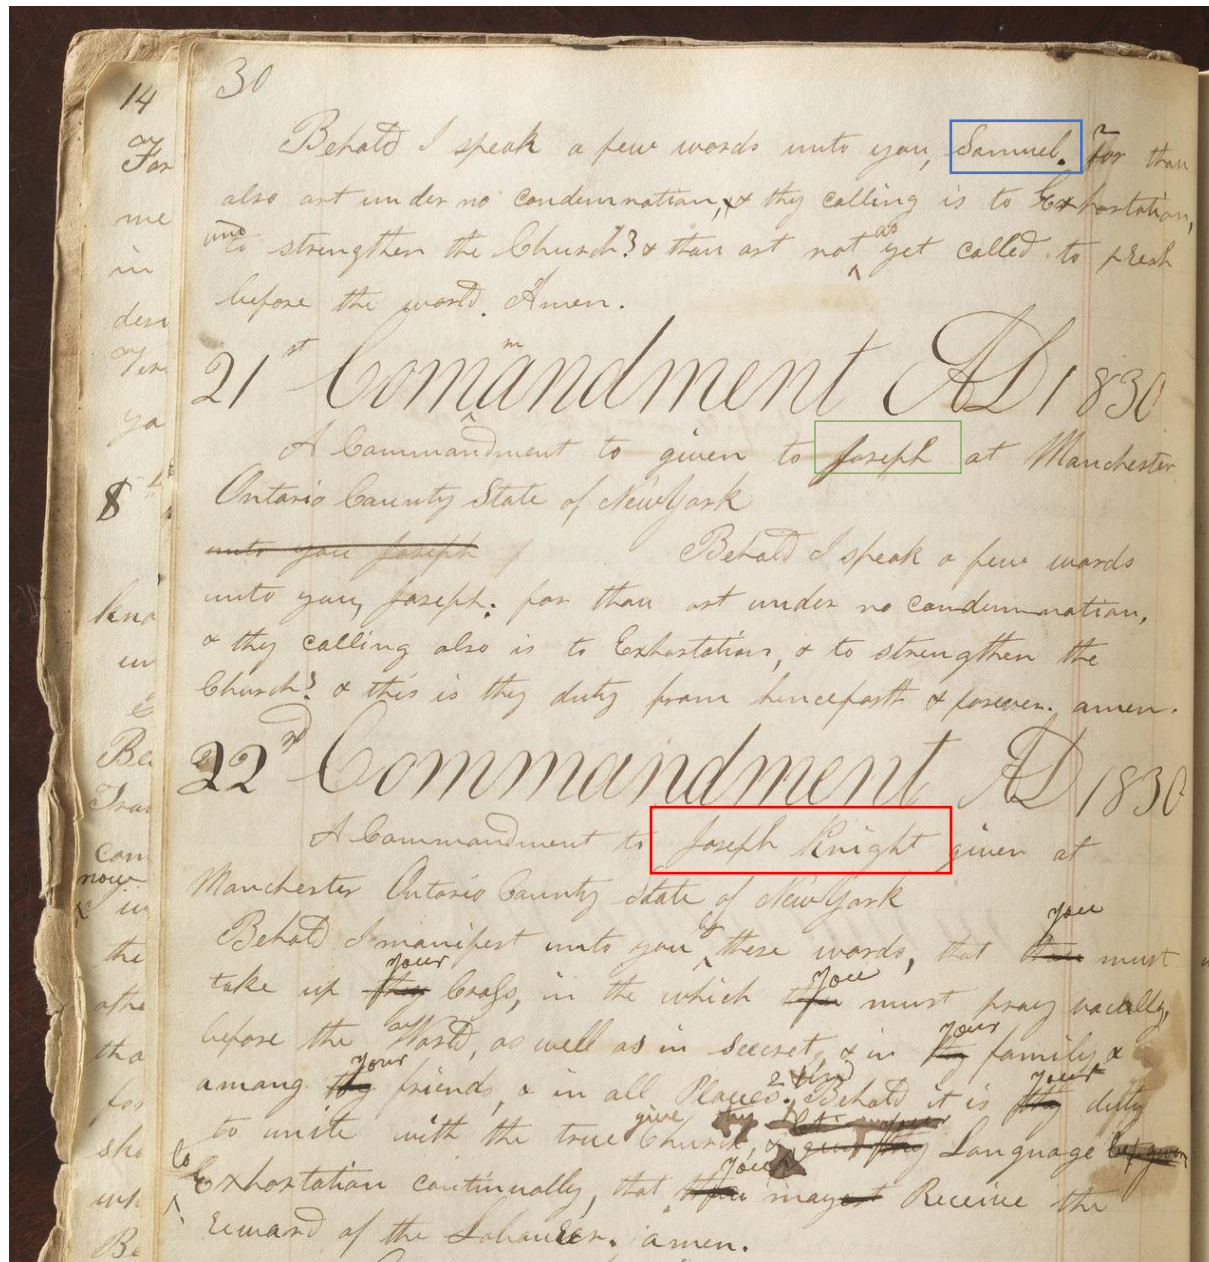 30
Behold I speak a few words unto you, Samuel. For thou
also art under no condemnation, & thy calling is to Exhortation,
and to strengthen the Church? & thou art not as yet called to preach
before the world. Amen.
21st Commandment AD 1830
A Commandment to given to Joseph at Manchester
Ontario County State of New York
unto you Joseph Behold I speak a few words
unto you, Joseph; for thou art under no condemnation,
& thy calling also is to Exhortation, & to strengthen the
Church? & this is thy duty from henceforth & forever. amen.
22nd Commandment AD 1830
A Commandment to Joseph Knight given at
Manchester Ontario County State of New York
Behold I manifest unto you by these words, that thou you must
take up thy your Cross, in the which thou you must pray vocally,
before the World, as well as in seecret, & in thy your family &
among thy your friends, & in all Places. 2 And Behold it is thy your duty
to unite with the true Church, & give Language
to Exhortation continually, that thou you mayest Receive the
reward of the Labourer. amen.
14
For
me
in
den
ya
8
kno
un
&
Be
Trav
com
now
in
the
othe
tha
for
sho
wh
Be